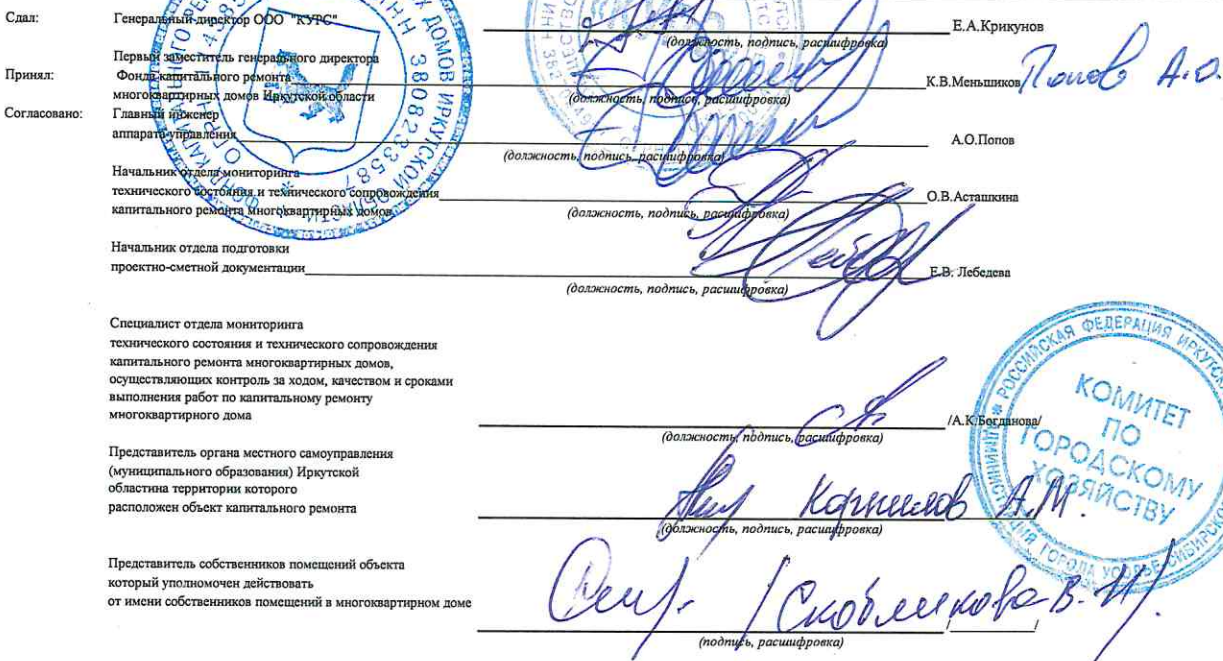 Сдал: Генеральный директор ООО "КУРС" Е.А.Крикунов
(должность, подпись, расшифровка)
Первый заместитель генерального директора
Принял: Фонда капитального ремонта К.В.Меньшиков Попов А.О.
многоквартирных домов Иркутской области (должность, подпись, расшифровка)
Согласовано: Главный инженер
аппарата управления А.О.Попов
(должность, подпись, расшифровка)
Начальник отдела мониторинга
технического состояния и технического сопровождения О.В.Асташкина
капитального ремонта многоквартирных домов (должность, подпись, расшифровка)
Начальник отдела подготовки
проектно-сметной документации Е.В. Лебедева
(должность, подпись, расшифровка)
Специалист отдела мониторинга
технического состояния и технического сопровождения
капитального ремонта многоквартирных домов,
осуществляющих контроль за ходом, качеством и сроками
выполнения работ по капитальному ремонту
многоквартирного дома /А.К.Богданова/
(должность, подпись, расшифровка)
Представитель органа местного самоуправления
(муниципального образования) Иркутской
областина территории которого
расположен объект капитального ремонта Корнилов А.М.
(должность, подпись, расшифровка)
Представитель собственников помещений объекта
который уполномочен действовать
от имени собственников помещений в многоквартирном доме / Скобликова В.И.
/ /
(подпись, расшифровка)
ОГРН
ИНН 3808233587
ДОМОВ ИРКУТСКОЙ ОБЛАСТИ
ФОНД КАПИТАЛЬНОГО
РОССИЙСКАЯ ФЕДЕРАЦИЯ
КОМИТЕТ
ПО
ГОРОДСКОМУ
ХОЗЯЙСТВУ
ГОРОДА УСОЛЬЕ-СИБИРСКОЕ